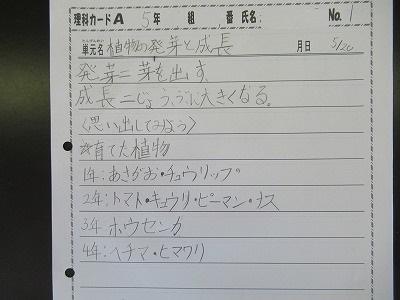 理科カードA 5年 組 番 氏名: No. 1
たんげんめい
単元名 植物の発芽と成長 月日 5/20
発芽=芽を出す
成長=じょうぶに大きくなる。
〈思い出してみよう〉
☆育てた植物
1年:あさがお・チューリップ
2年:トマト・キュウリ・ピーマン・ナス
3年:ホウセンカ
4年:ヘチマ・ヒマワリ